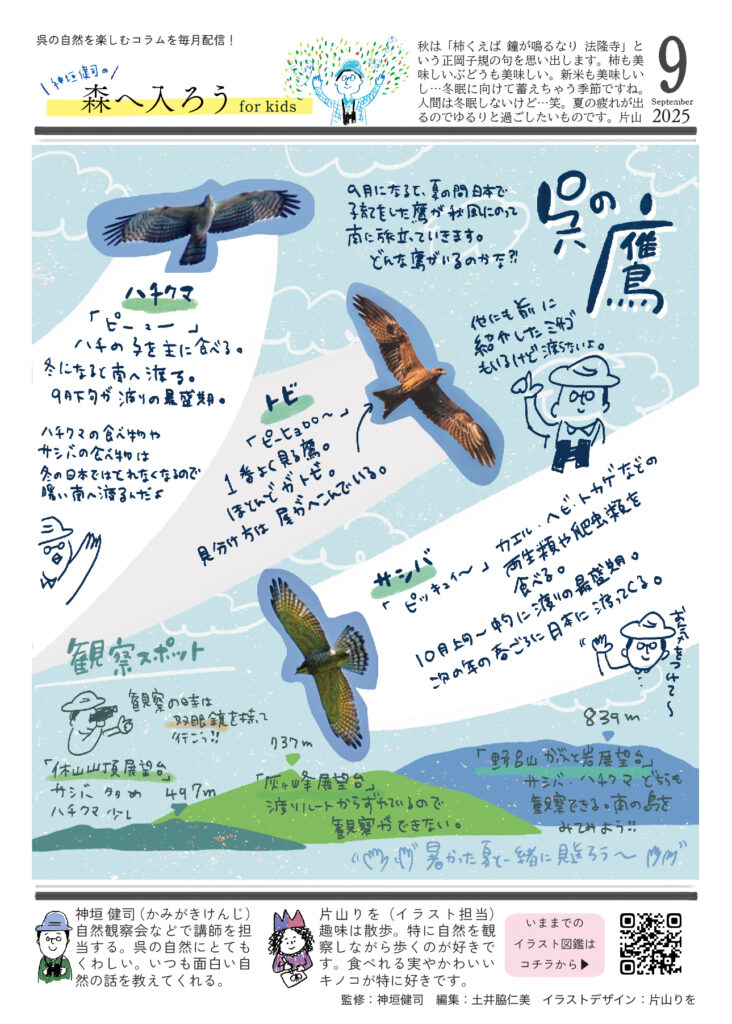 呉の自然を楽しむコラムを毎月配信！
神垣健司の
森へ入ろう for kids~
秋は「柿くえば 鐘が鳴るなり 法隆寺」と
いう正岡子規の句を思い出します。柿も美
味しいぶどうも美味しい。新米も美味しい
し…冬眠に向けて蓄えちゃう季節ですね。
人間は冬眠しないけど…笑。夏の疲れが出
るのでゆるりと過ごしたいものです。片山
9
September
2025
呉の鷹
9月になると、夏の間日本で
子育てをした鷹が秋風にのって
南に旅立っていきます。
どんな鷹がいるのかな?!
他にも前に
紹介したミサゴ
もいるけど渡らないよ。
ハチクマ
「ピーユー」
ハチの子を主に食べる。
冬になると南へ渡る。
9月下旬が渡りの最盛期。
ハチクマの食べ物や
サシバの食べ物は
冬の日本ではとれなくなるので
暖い南へ渡るんだよ
トビ
「ピーヒョロロ〜」
1番よく見る鷹。
ほとんどがトビ。
見分け方は尾がへこんでいる。
サシバ
「ピックィ〜」
カエル・ヘビ・トカゲなどの
両生類や爬虫類を
食べる。
10月上旬〜中旬に渡りの最盛期。
次の年の春ごろに日本に渡ってくる。
お気をつけて〜
観察スポット
観察の時は
双眼鏡を持って
行こう!!
「休山山頂展望台」
サシバ 多め
ハチクマ 少し
497m
737m
「灰ヶ峰展望台」
渡りルートからずれているので
観察ができない。
839m
「野呂山かぶと岩展望台」
サシバ・ハチクマ どちらも
観察できる。南の島を
みてみよう!!
暑かった夏と一緒に見送ろう〜
神垣 健司（かみがきけんじ）
自然観察会などで講師を担
当する。呉の自然にとても
くわしい。いつも面白い自
然の話を教えてくれる。
片山りを（イラスト担当）
趣味は散歩。特に自然を観
察しながら歩くのが好きで
す。食べれる実やかわいい
キノコが特に好きです。
いままでの
イラスト図鑑は
コチラから▶
監修：神垣健司　編集：土井脇仁美　イラストデザイン：片山りを